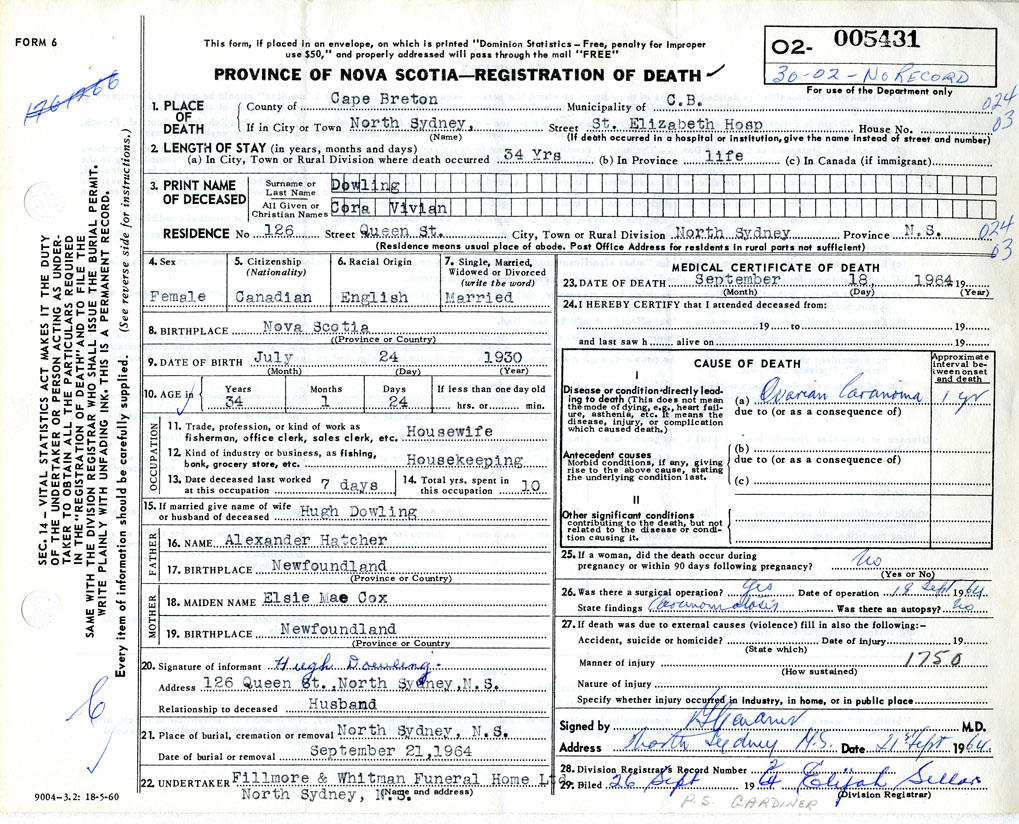 FORM 6
This form, if placed in an envelope, on which is printed "Dominion Statistics – Free, penalty for improper
use $50," and properly addressed will pass through the mail "FREE"
PROVINCE OF NOVA SCOTIA—REGISTRATION OF DEATH ✓
02- 005431
30-02-NO RECORD
For use of the Department only
176 1266
024
03
1. PLACE OF DEATH
County of Cape Breton Municipality of C.B.
If in City or Town North Sydney, Street St. Elizabeth Hosp House No.
(Name) (If death occurred in a hospital or institution, give the name instead of street and number)
2. LENGTH OF STAY (in years, months and days)
(a) In City, Town or Rural Division where death occurred 34 Yrs (b) In Province life (c) In Canada (if immigrant)
3. PRINT NAME OF DECEASED
Surname or Last Name Dowling
All Given or Christian Names Cora Vivian
RESIDENCE No 126 Street Queen St. City, Town or Rural Division North Sydney Province N.S.
(Residence means usual place of abode. Post Office Address for residents in rural parts not sufficient)
024
03
4. Sex
Female
5. Citizenship
(Nationality)
Canadian
6. Racial Origin
English
7. Single, Married,
Widowed or Divorced
(write the word)
Married
8. BIRTHPLACE Nova Scotia
(Province or Country)
9. DATE OF BIRTH July 24 1930
(Month) (Day) (Year)
10. AGE in
Years Months Days If less than one day old
34 1 24 hrs. or min.
OCCUPATION
11. Trade, profession, or kind of work as
fisherman, office clerk, sales clerk, etc. Housewife
12. Kind of industry or business, as fishing,
bank, grocery store, etc. Housekeeping
13. Date deceased last worked
at this occupation 7 days
14. Total yrs. spent in
this occupation 10
15. If married give name of wife
or husband of deceased Hugh Dowling
FATHER
16. NAME Alexander Hatcher
17. BIRTHPLACE Newfoundland
(Province or Country)
MOTHER
18. MAIDEN NAME Elsie Mae Cox
19. BIRTHPLACE Newfoundland
(Province or Country
20. Signature of informant Hugh Dowling
Address 126 Queen St., North Sydney, N.S.
Relationship to deceased Husband
21. Place of burial, cremation or removal North Sydney, N.S.
Date of burial or removal September 21,1964
22. UNDERTAKER Fillmore & Whitman Funeral Home Ltd.
North Sydney, N.S.
(Name and address)
MEDICAL CERTIFICATE OF DEATH
23. DATE OF DEATH September 18, 1964 19
(Month) (Day) (Year)
24. I HEREBY CERTIFY that I attended deceased from:
19 to 19
and last saw h alive on 19
CAUSE OF DEATH
Approximate interval between onset and death
I
Disease or condition directly leading to death (This does not mean
the mode of dying, e.g., heart failure, asthenia, etc. It means the
disease, injury, or complication
which caused death.)
(a) Ovarian Caranoma 1 yr
due to (or as a consequence of)
Antecedent causes
Morbid conditions, if any, giving
rise to the above cause, stating
the underlying condition last.
(b)
due to (or as a consequence of)
(c)
II
Other significant conditions
contributing to the death, but not
related to the disease or condition causing it.
25. If a woman, did the death occur during
pregnancy or within 90 days following pregnancy? No
(Yes or No)
26. Was there a surgical operation? Yes Date of operation 18 Sept 1964
State findings Caranomatosis Was there an autopsy? No
27. If death was due to external causes (violence) fill in also the following:–
Accident, suicide or homicide? Date of injury 19
(State which)
Manner of injury 1750
(How sustained)
Nature of injury
Specify whether injury occurred in Industry, in home, or in public place
Signed by Gardiner M.D.
Address North Sydney N.S. Date 21 Sept 1964.
28. Division Registrar's Record Number
29. Filed 26 Sept 19 64 Elijah Sellars
(Division Registrar)
P.S. GARDINER
9004-3.2: 18-5-60
SEC. 14 – VITAL STATISTICS ACT MAKES IT THE DUTY
OF THE UNDERTAKER OR PERSON ACTING AS UNDER-
TAKER TO OBTAIN ALL THE PARTICULARS REQUIRED
IN THE "REGISTRATION OF DEATH" AND TO FILE THE
SAME WITH THE DIVISION REGISTRAR WHO SHALL ISSUE THE BURIAL PERMIT.
WRITE PLAINLY WITH UNFADING INK. THIS IS A PERMANENT RECORD.
Every item of information should be carefully supplied. (See reverse side for instructions.)